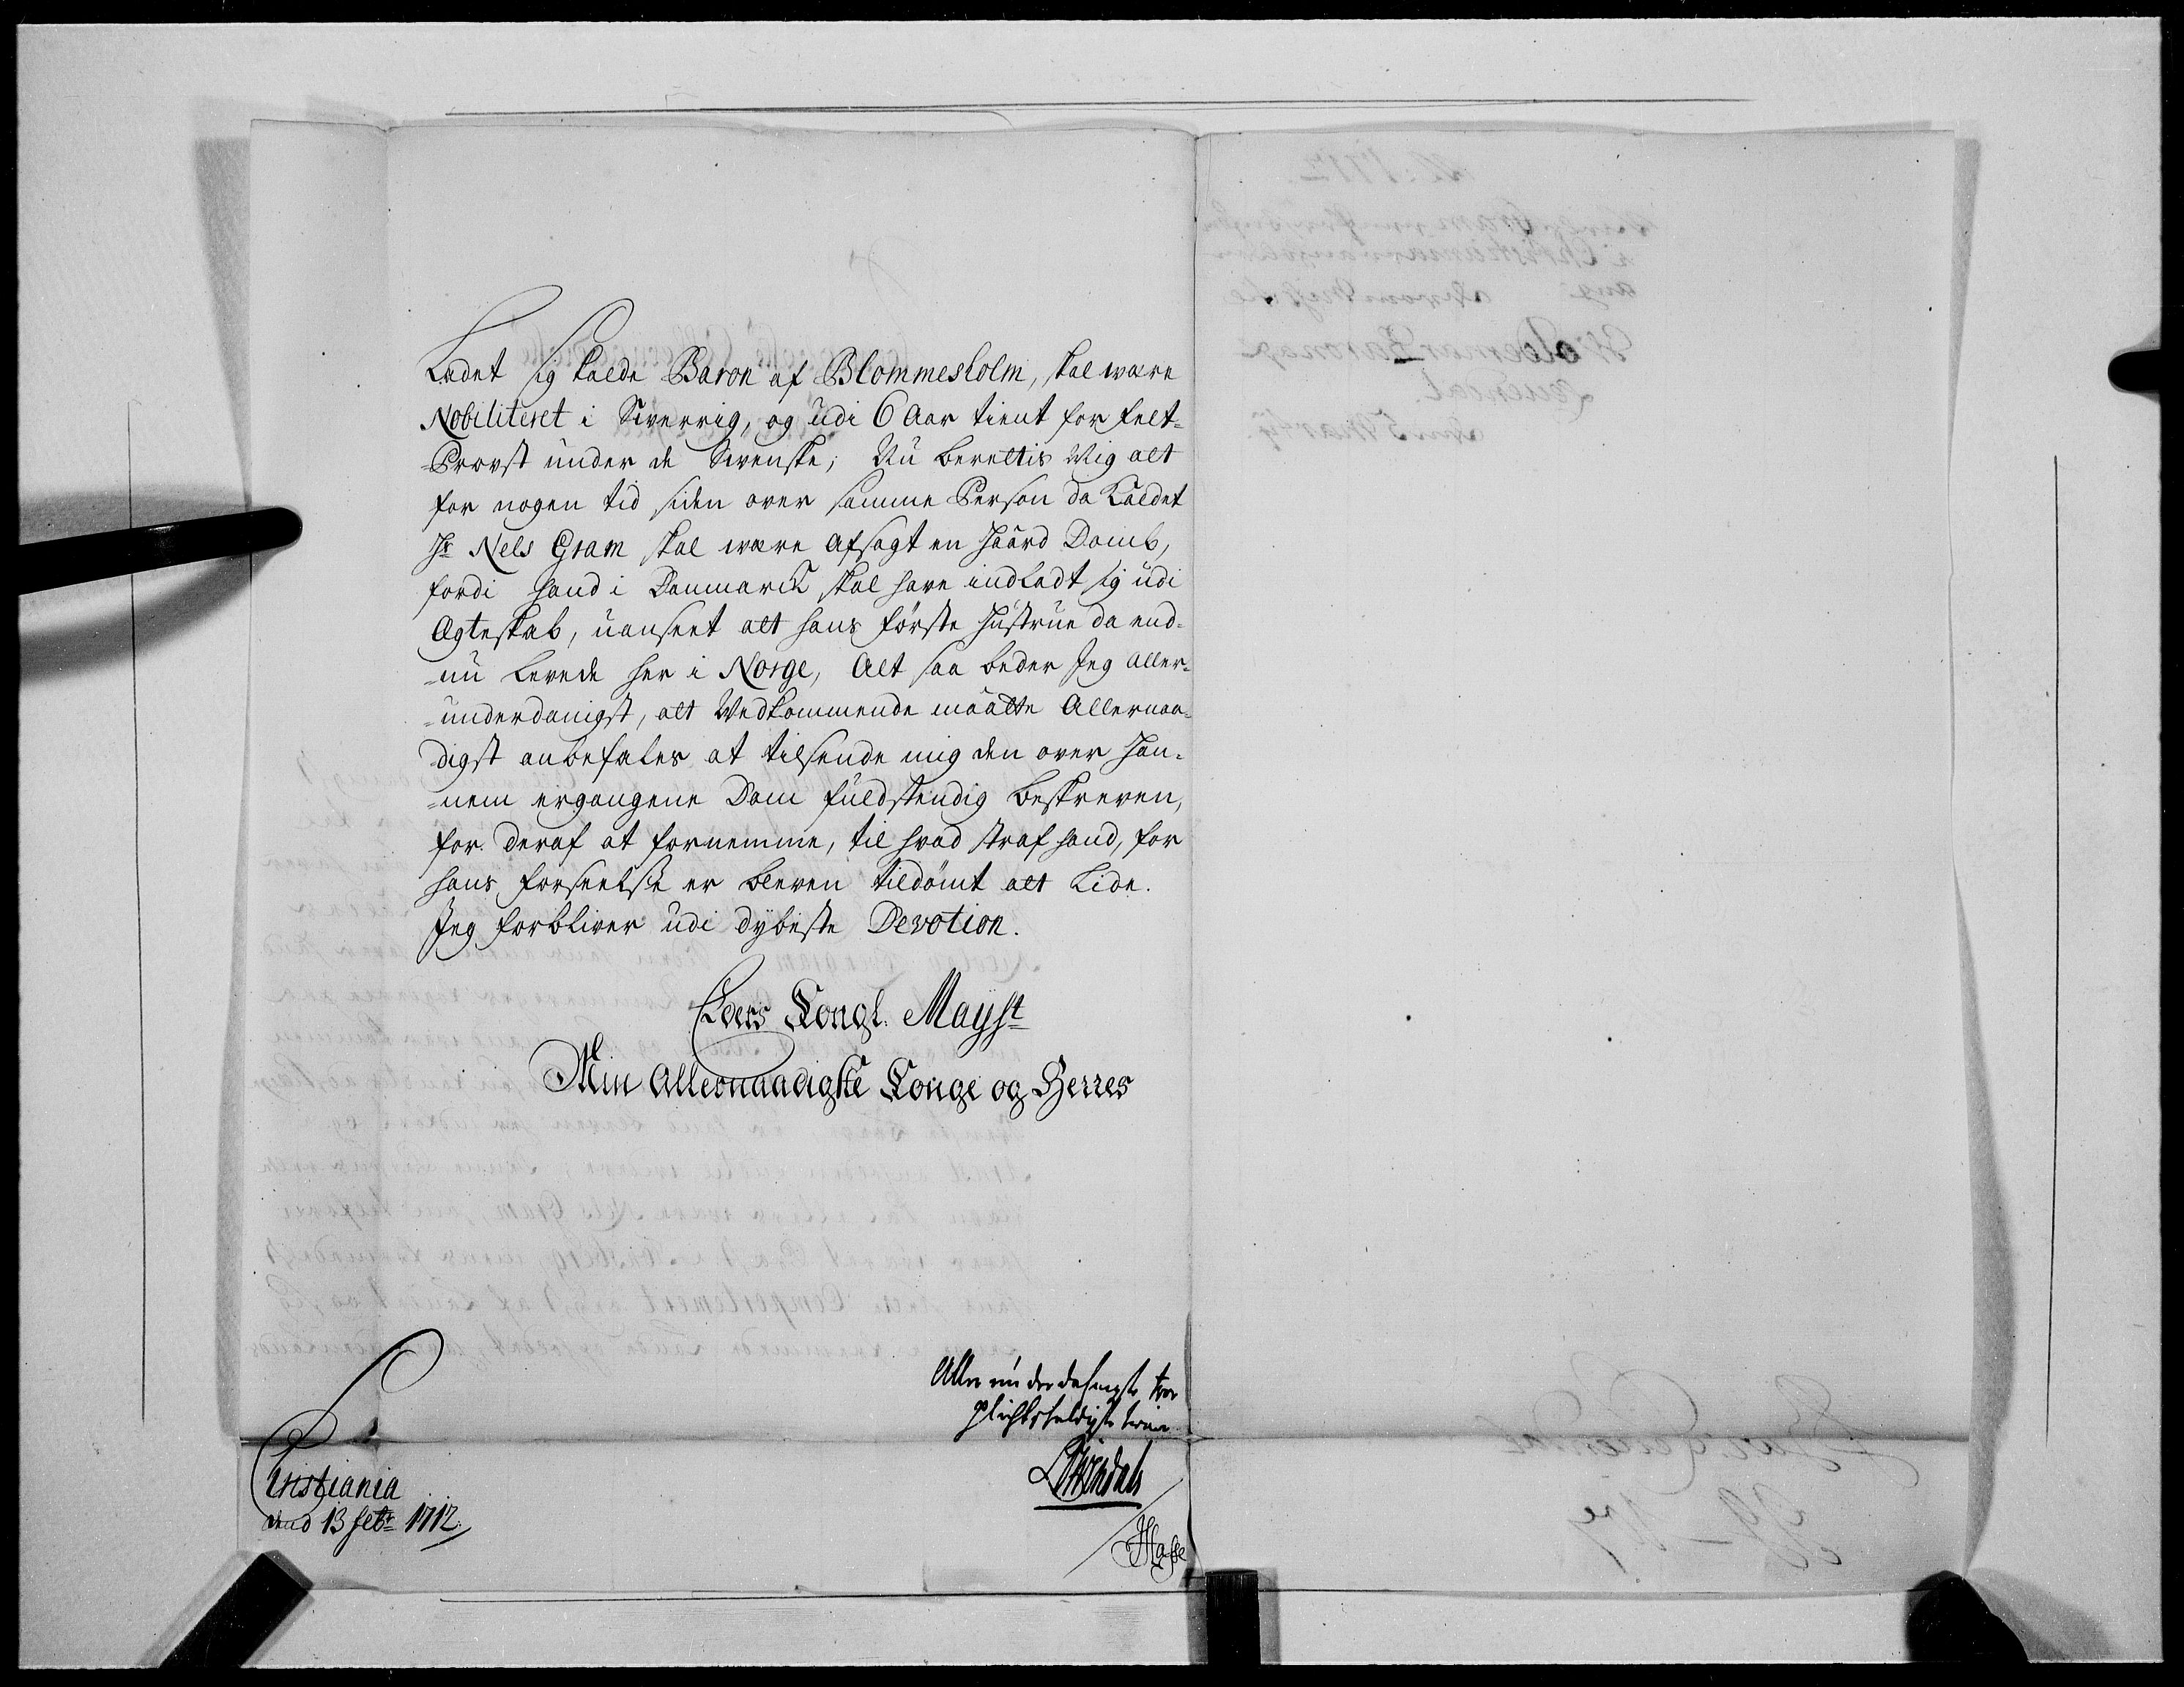 Ladet sig kalde Baron af Blommesholm, skal være
Nobiliteret i Sverrig, og udi 6 Aar tient for felt-
Provst under de Svenske; Nu berettis Mig att
for nogen tid siden over samme Person da kaldet
Hr Nels Gram skal være Afsagt en haard Domb,
fordi hand i Danmarck skal have indladt sig udi
Ægteskab, uanseet att hans förste Hustrue da end-
-nu levede her i Norge, Alt saa beder Jeg Aller-
-underdanigst, att Vedkommende maatte Allernaa-
digst anbefales at tilsende mig den over Han-
-nem ergangene Dom fuldstendig beskreven,
for deraf at fornemme, til hvad straf hand, for
hans forseelse er bleven tildömt att Lide.
Jeg forbliver udi dybeste Devotion.
Eders Kongl. Mayst
Min Allernaadigste Konge og Herres
Aller under dahnigste troe
plichtskuldigste tiener
Løvendals
Christiania
dend 13 febr 1712.